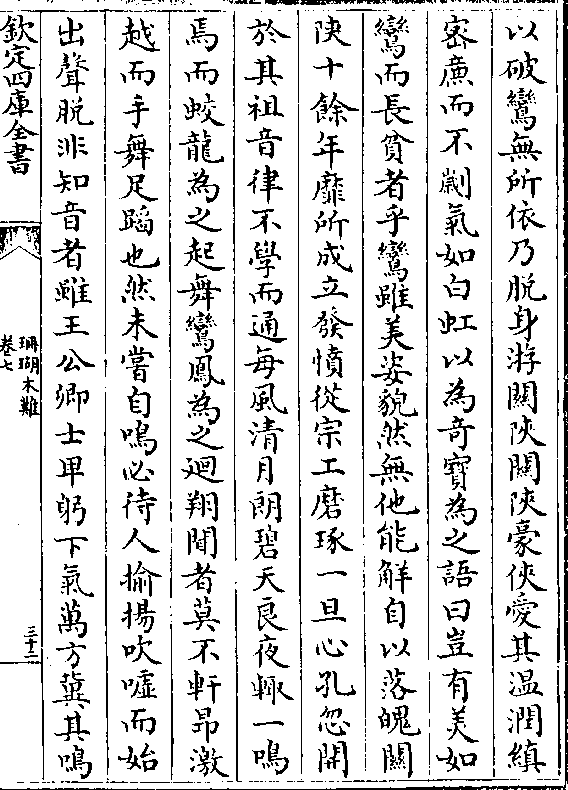 以破鸞無所依乃脱身游關陜關陜豪俠愛其温潤縝
宻㢘而不劌氣如白虹以為奇寶為之語曰豈有美如
鸞而長貧者乎鸞雖美姿貌然無他能解自以落魄關
陜十餘年靡所成立發憤從宗工磨琢一旦心孔忽開
於其祖音律不學而通每風清月朗碧天良夜輙一鳴
焉而蛟龍為之起舞鸞鳳為之廻翔聞者莫不軒昻激
越而手舞足蹈也然未嘗自鳴必待人揄揚吹噓而始
出聲脱非知音者雖王公卿士卑躬下氣萬方冀其鳴
欽定四庫全書
珊瑚木難
卷七
三十二